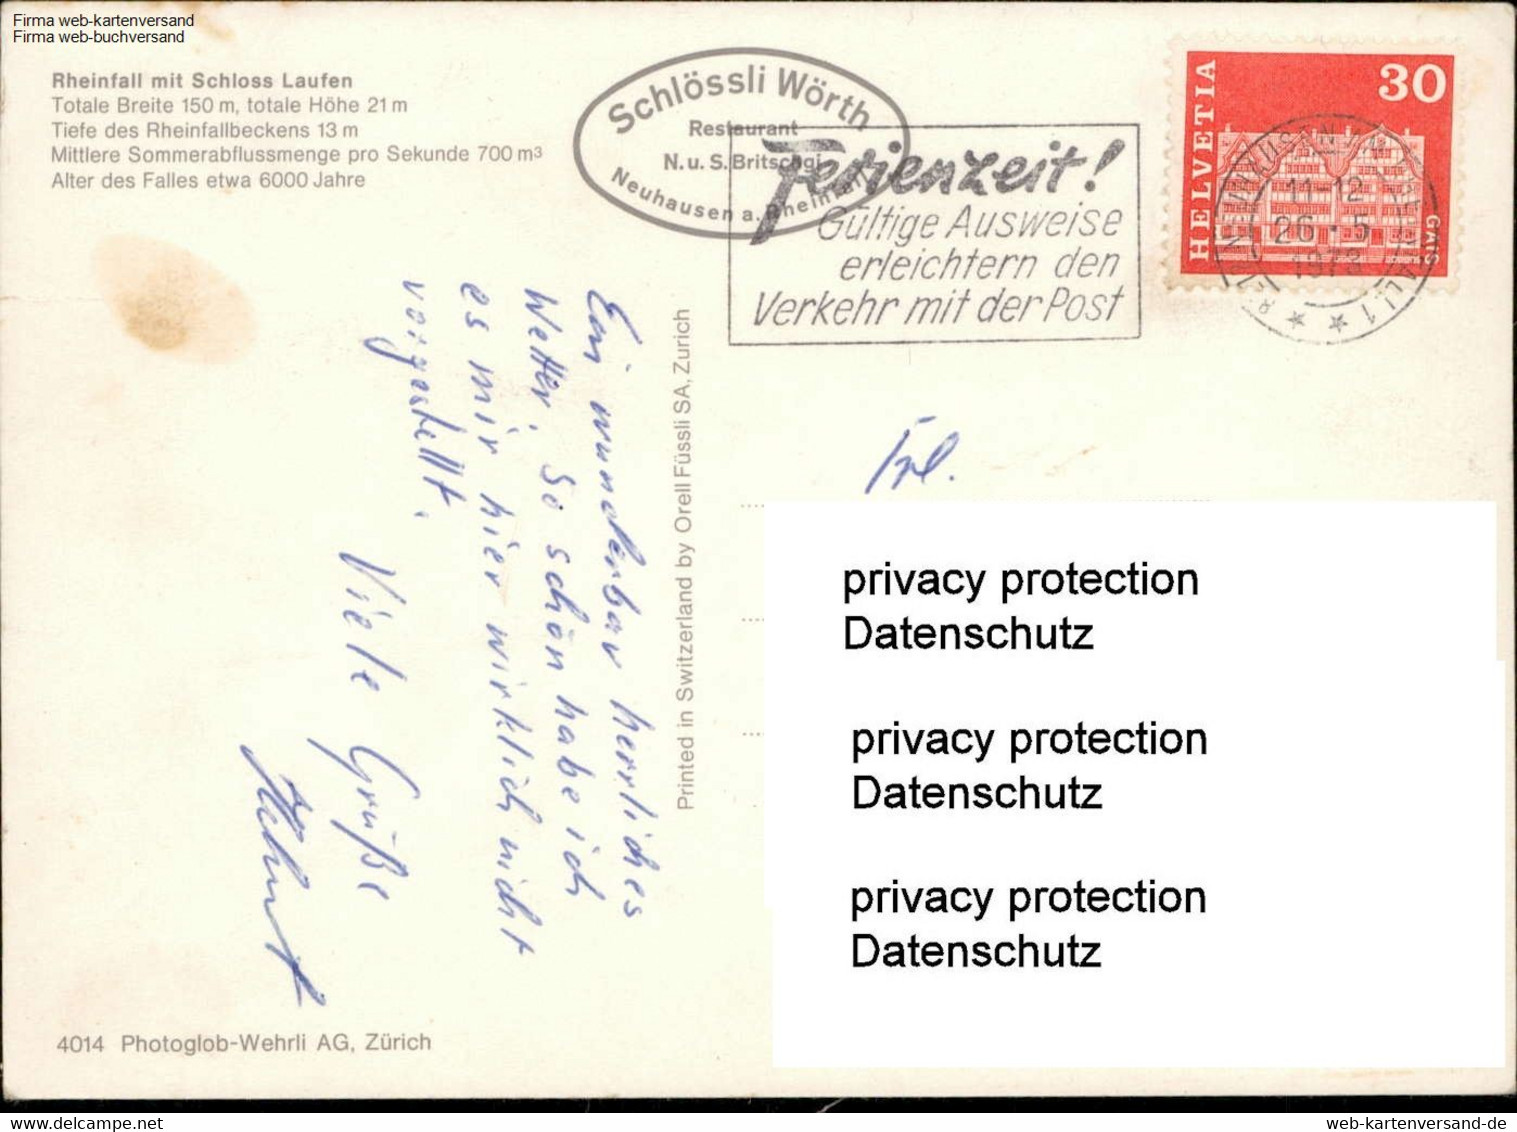 Firma web-kartenversand
Firma web-buchversand
Rheinfall mit Schloss Laufen
Totale Breite 150 m, totale Höhe 21 m
Tiefe des Rheinfallbeckens 13 m
Mittlere Sommerabflussmenge pro Sekunde 700 m³
Alter des Falles etwa 6000 Jahre
Schlössli Wörth
Restaurant
N. u. S. Britschgi
Neuhausen a. Rheinfall
Ferienzeit!
Gültige Ausweise
erleichtern den
Verkehr mit der Post
HELVETIA
30
GAIS
NEUHAUSEN AM RHEINFALL 1
11-12
26.-5
1973
Ein wunderbar herrliches
Wetter. So schön habe ich
es mir hier wirklich nicht
vorgestellt.
Viele Grüße
Helmut
Printed in Switzerland by Orell Füssli SA, Zurich
Frl.
privacy protection
Datenschutz
privacy protection
Datenschutz
privacy protection
Datenschutz
4014 Photoglob-Wehrli AG, Zürich
web-kartenversand-de